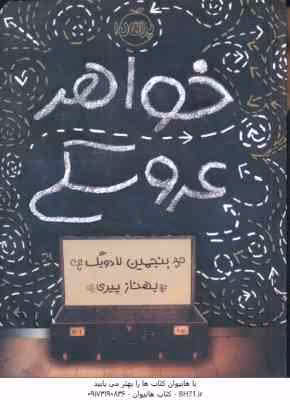 خواهر
عروسکی
بنجمین لادویگ
بهناز پیری
با هابیوان کتاب ها را بهتر می یابید
BH21.ir - کتاب هابیوان - ۰۹۱۷۳۱۹۰۸۳۶